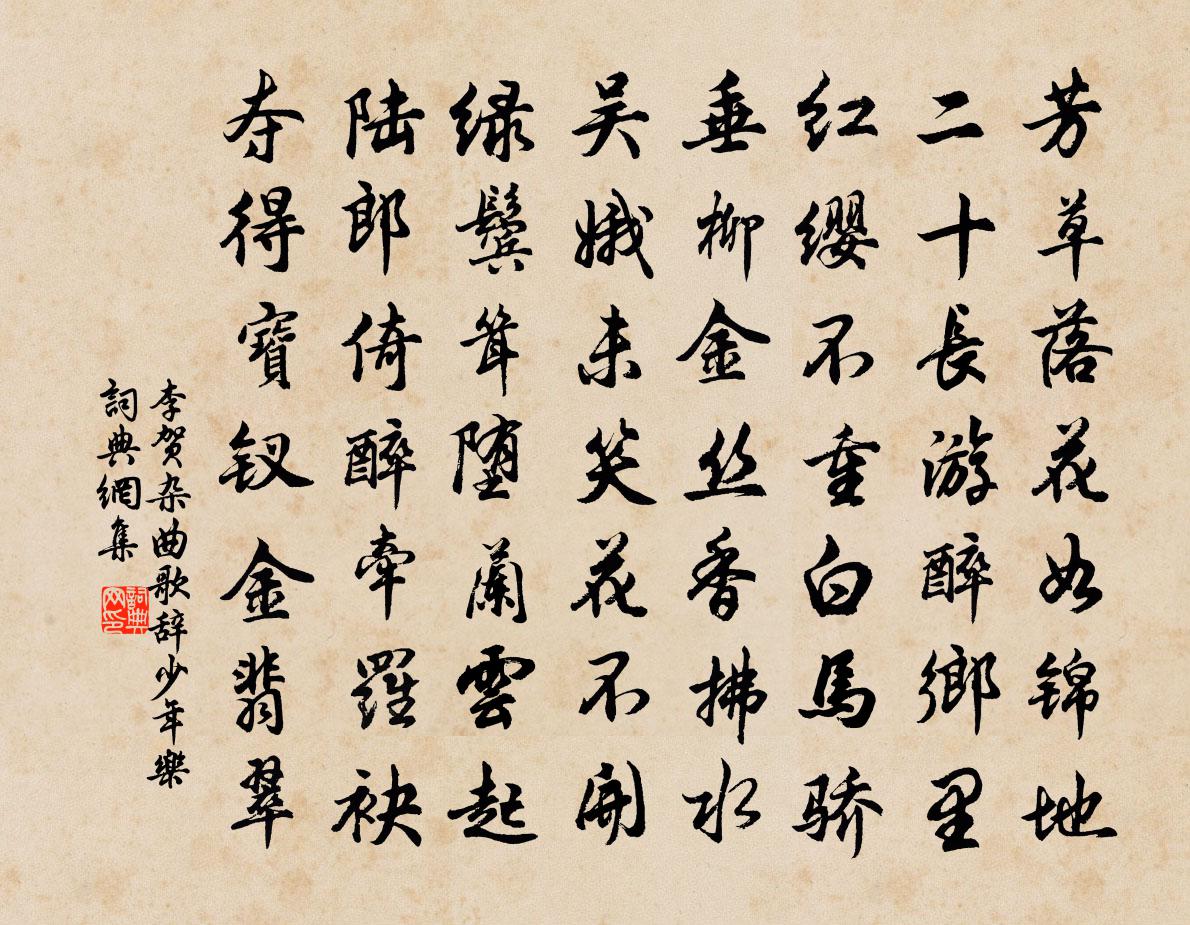 芳草落花如锦地
二十長游醉鄉里
红缨不重白馬骄
垂柳金丝香拂水
吴娥未笑花不開
绿鬓耸堕蘭雲起
陆郎倚醉牵羅袂
夺得寶钗金翡翠
李贺杂曲歌辞少年樂
詞典網集
詞典网印